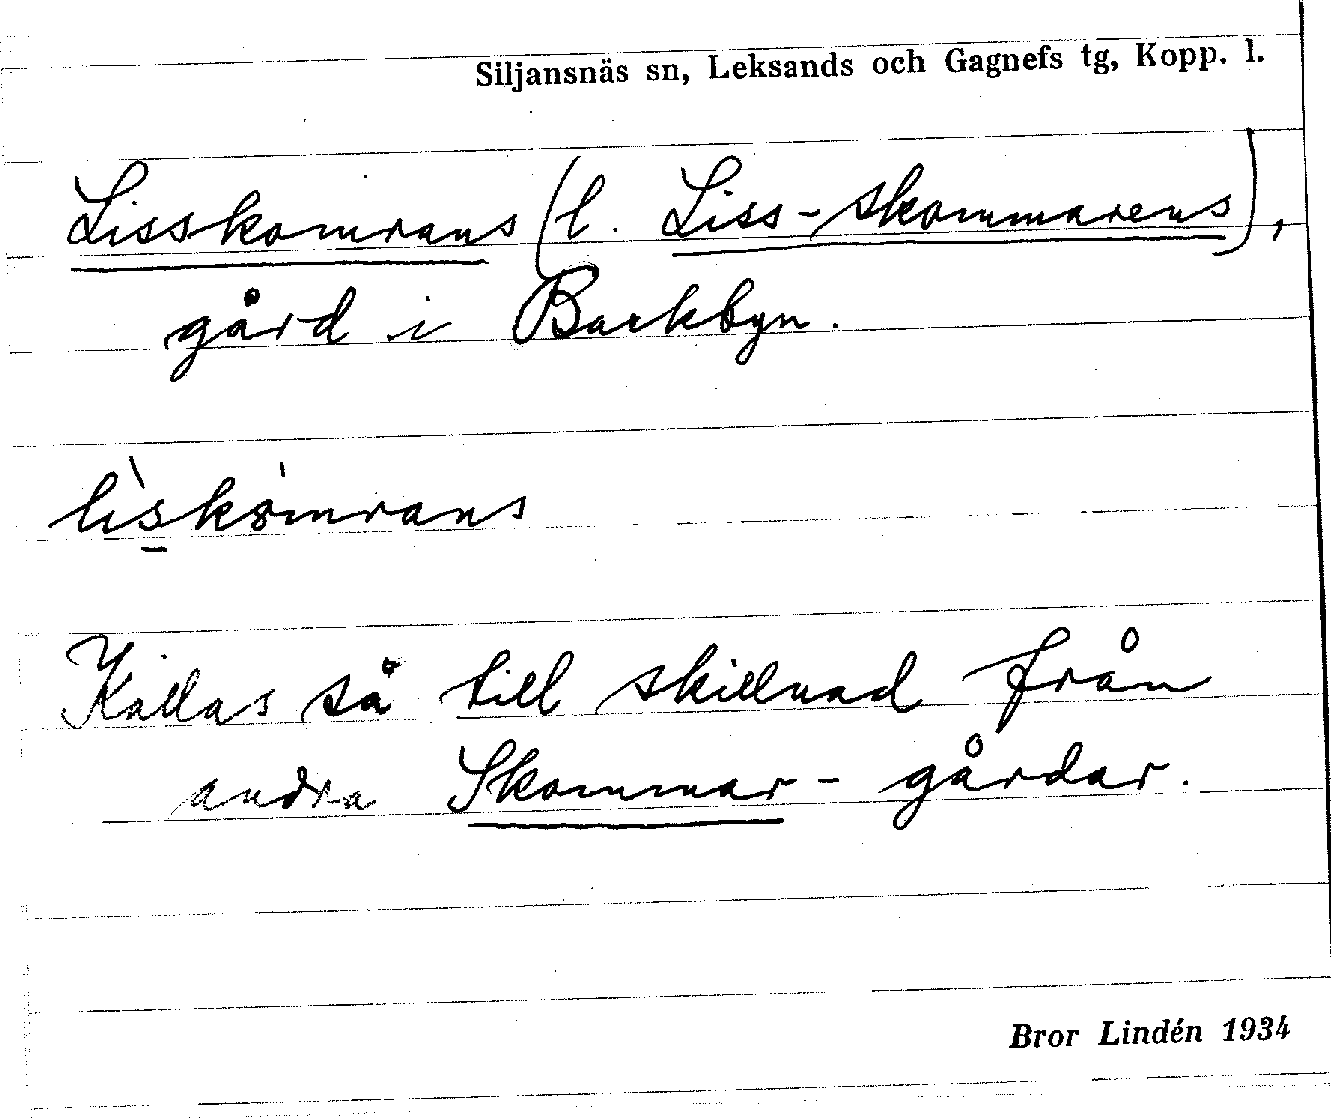 Siljansnäs sn, Leksands och Gagnefs tg, Kopp. l.
Lisskomrans (l. Liss-skommarens),
gård i Backbyn.
lìskòmrans
Kallas så till skillnad från
andra Skommar-gårdar.
Bror Lindén 1934